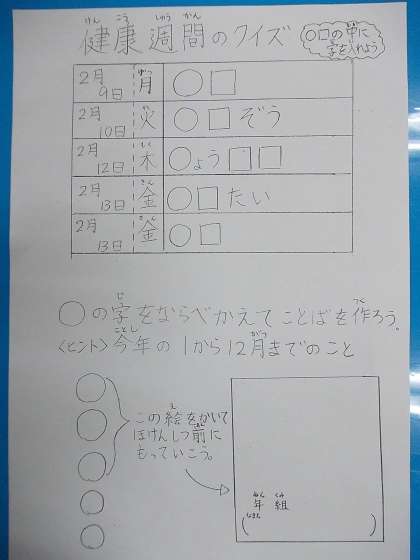 健康週間のクイズ
○□の中に
字を入れよう
2月9日 月 ○□
2月10日 火 ○□ぞう
2月12日 木 ○ょう□□
2月13日 金 ○□たい
2月13日 金 ○□
○の字をならべかえてことばを作ろう。
〈ヒント〉今年の1から12月までのこと
この絵をかいて
ほけんしつ前に
もっていこう。
年 組
( )